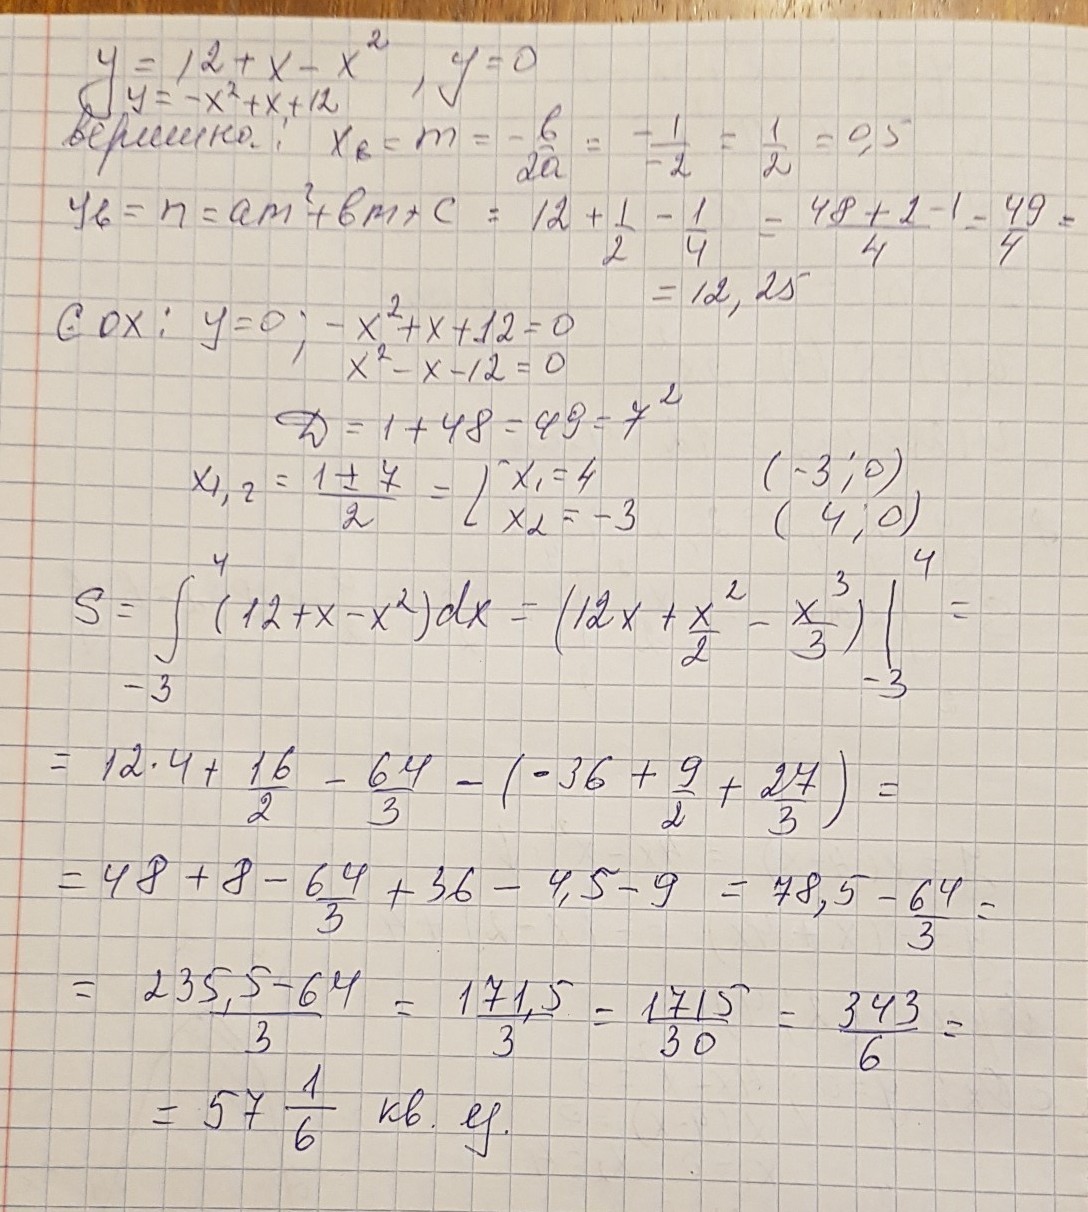 y = 12 + x - x², y = 0
y = -x² + x + 12
вершина: xв = m = -b/2a = -1/-2 = 1/2 = 0,5
yв = n = am² + bm + c = 12 + 1/2 - 1/4 = (48 + 2 - 1)/4 = 49/4 =
= 12,25
С OX: y = 0; -x² + x + 12 = 0
x² - x - 12 = 0
D = 1 + 48 = 49 = 7²
x₁,₂ = (1 ± 7)/2 = [ x₁ = 4 (-3; 0)
x₂ = -3 (4; 0)
S = ∫₋₃⁴ (12 + x - x²)dx = (12x + x²/2 - x³/3) |₋₃⁴ =
= 12·4 + 16/2 - 64/3 - (-36 + 9/2 + 27/3) =
= 48 + 8 - 64/3 + 36 - 4,5 - 9 = 78,5 - 64/3 =
= (235,5 - 64)/3 = 171,5/3 = 1715/30 = 343/6 =
= 57 1/6 кв. ед.